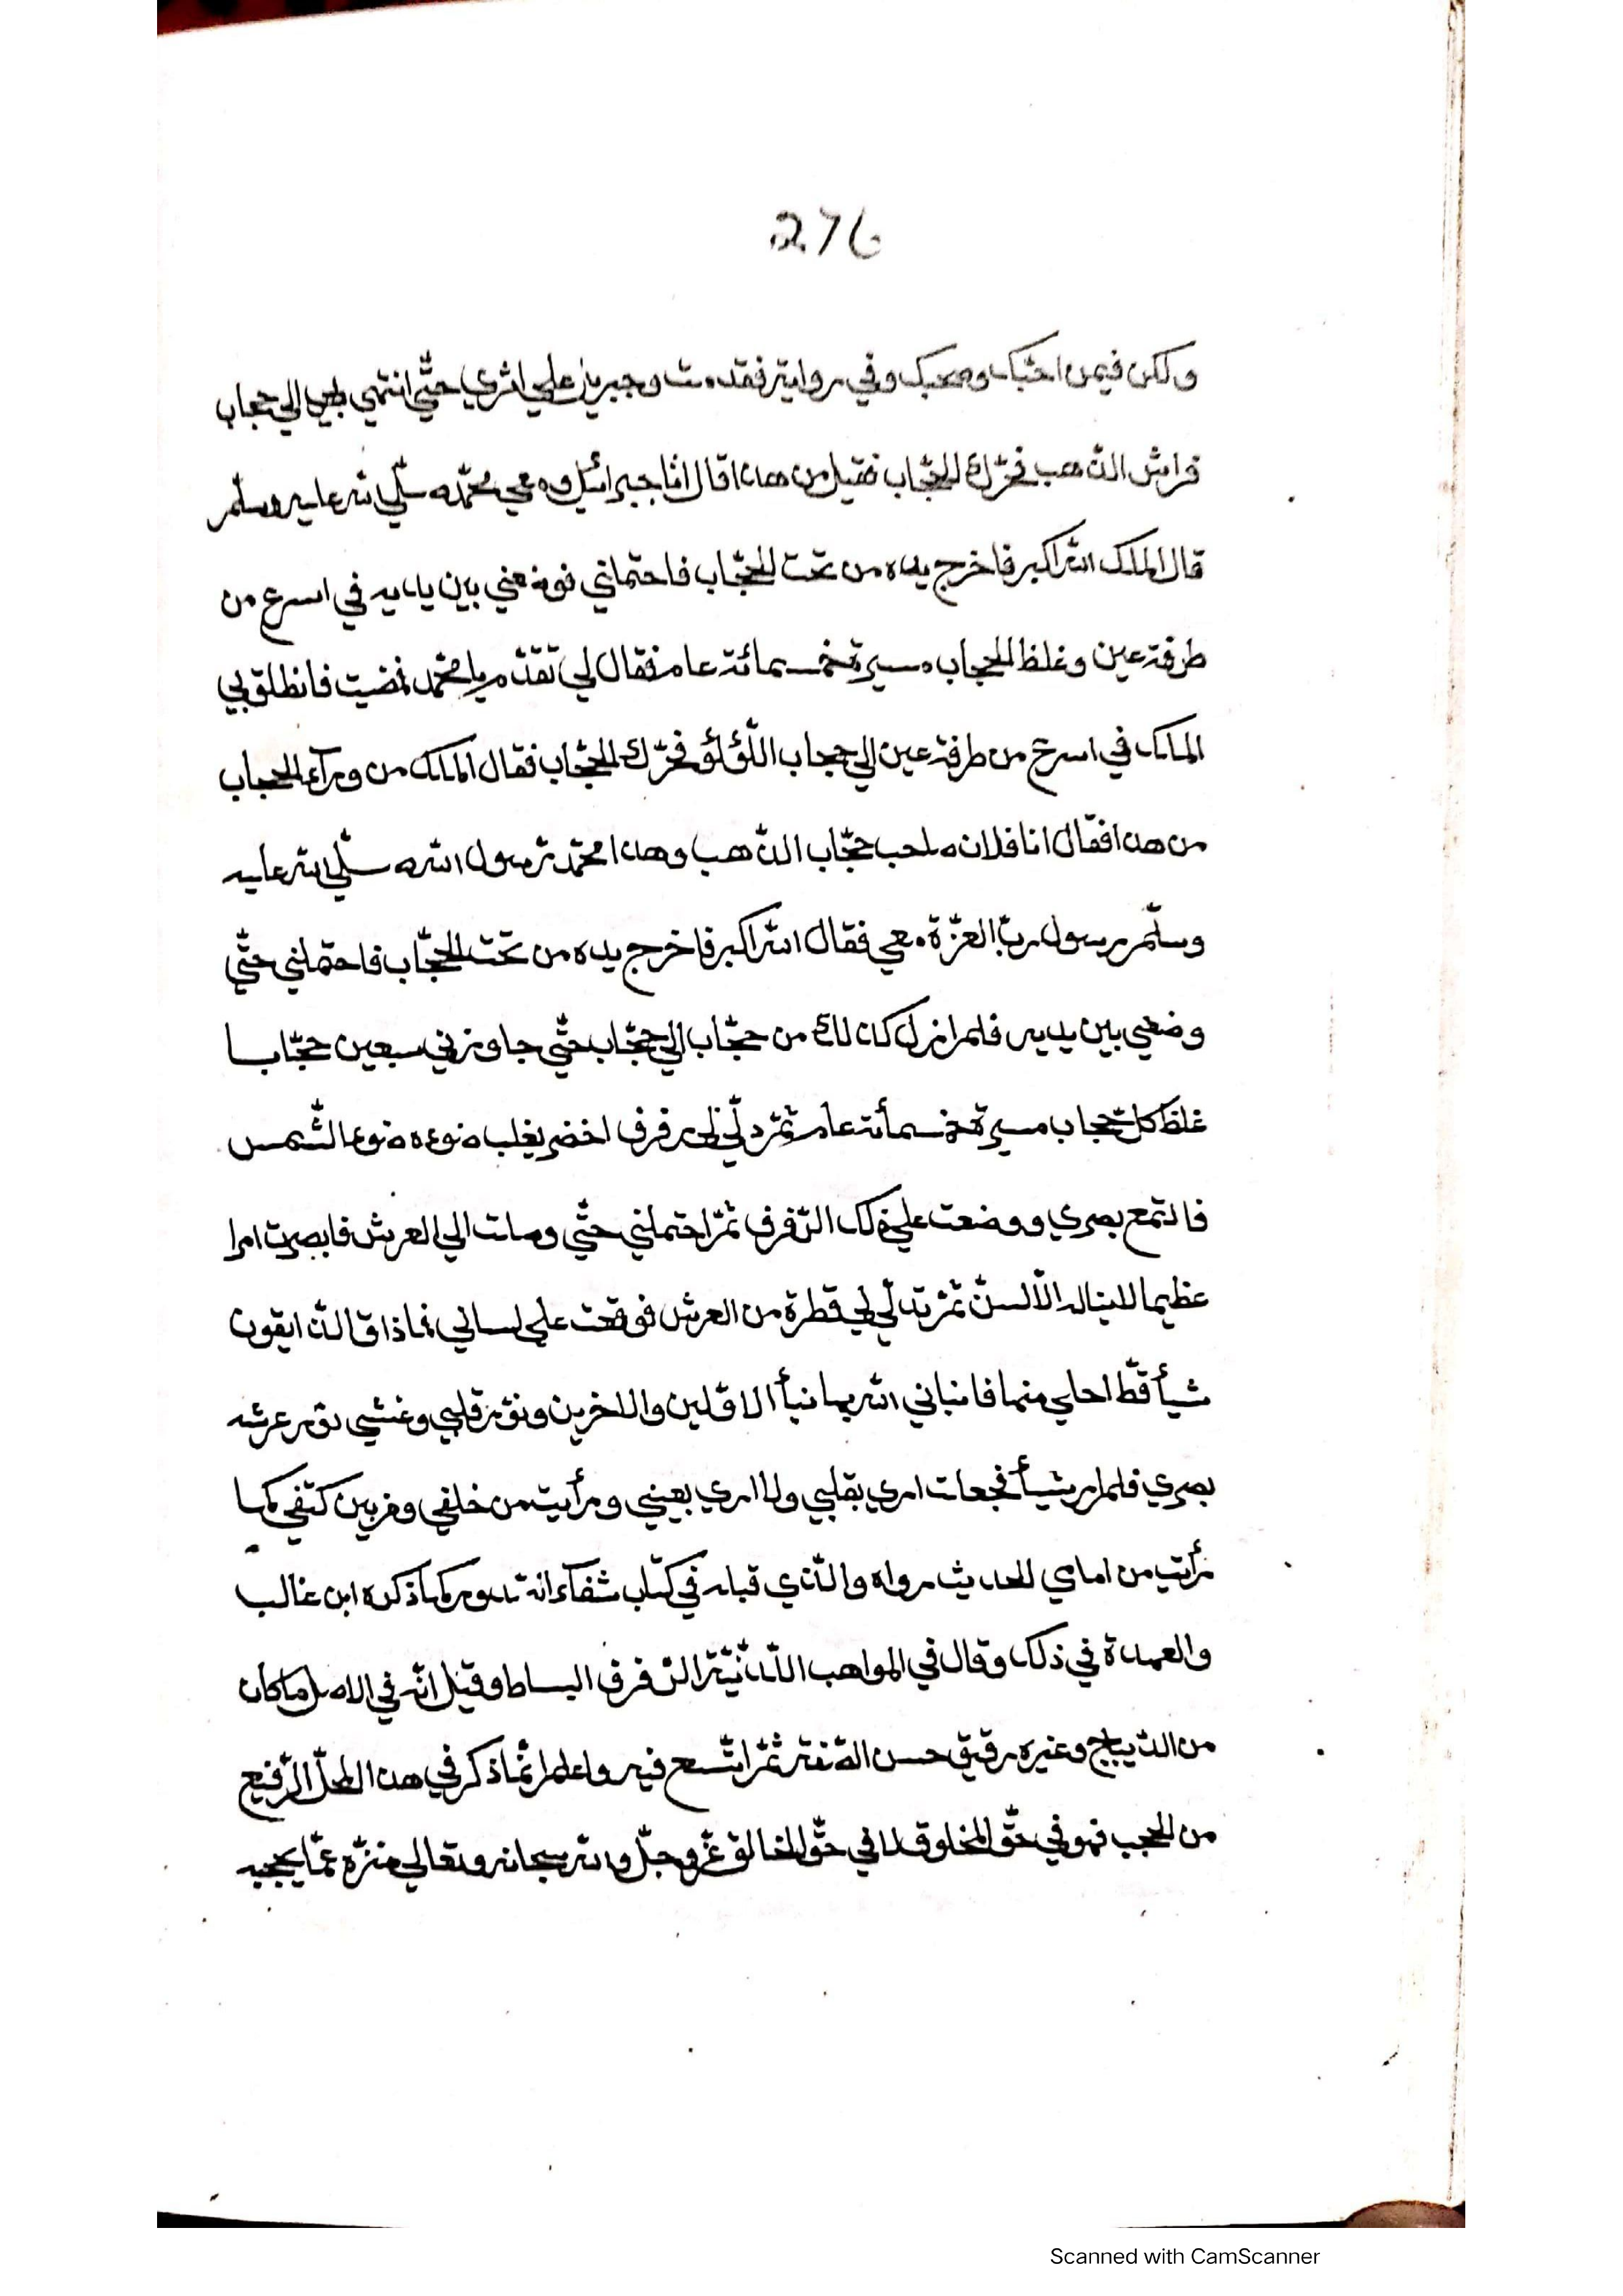 276
ولكن فيمن احبّك وصحبك وفي رواية فقدمت وجبريل علي اثري حتّي انتهي بي الي حجاب
فراش الذّهب فحرّك الحجّاب فقيل من هذا قال انا جبرائيل ومعي محمّد صلّي الله عليه وسلّم
قال الملك الله اكبر فاخرج يده من تحت الحجّاب فاحتملني فوضعني بين يديه في اسرع من
طرفة عين وغلظ الحجاب مسيرة خمسمائة عام فقال لي تقدّم يا محمّد فمضيت فانطلق بي
الملك في اسرع من طرفة عين الي حجاب اللّؤلؤ فحرّك الحجّاب فقال الملك من ورآء الحجاب
من هذا فقال انا فلان صاحب حجّاب الذّهب وهذا محمّد رّسول الله صلّي الله عليه
وسلّم رسول ربّ العزّة معي فقال الله اكبر فاخرج يده من تحت الحجّاب فاحتملني حتّي
وضعني بين يديه فلم ازل كذلك من حجّاب الي حجّاب حتّي جاوزني سبعين حجّابا
غلظ كلّ حجاب مسيرة خمسمأئة عام ثمّ دلّي لي رفرف اخضر يغلب ضوءه ضوء الشّمس
فالتمع بصري ووضعت علي ذلك الرّفرف ثمّ احتملني حتّي وصلت الي العرش فابصرت امرا
عظيما لاتناله الألسن ثمّ تدلّي لي قطرة من العرش فوقعت علي لساني فما ذاق الذّايقون
شيأ قطّ احلي منها فانباني الله بها نبأ الاوّلين والاخرين ونوّر قلبي وغشي نور عرشه
بصري فلم ار شيأ فجعلت اري بقلبي ولا اري بعيني ورأيت من خلفي ومن بين كتفي كما
رأيت من امامي الحديث رواه والّذي قبله في كتاب شفآء الصّدور كما ذكره ابن غالب
والعهدة في ذلك وقال في المواهب اللّدنّيّة الرّفرف البساط وقيل انّه في الاصل ما كان
من الدّيباج وغيره رقيق حسن الصّنعة ثمّ اتّسع فيه واعلم انّ ما ذكر في هذا المحلّ الرّفيع
من الحجب فهو في حقّ المخلوق لا في حقّ الخالق عزّ وجلّ والله سبحانه وتعالي منزّه عمّا يحجبه
Scanned with CamScanner